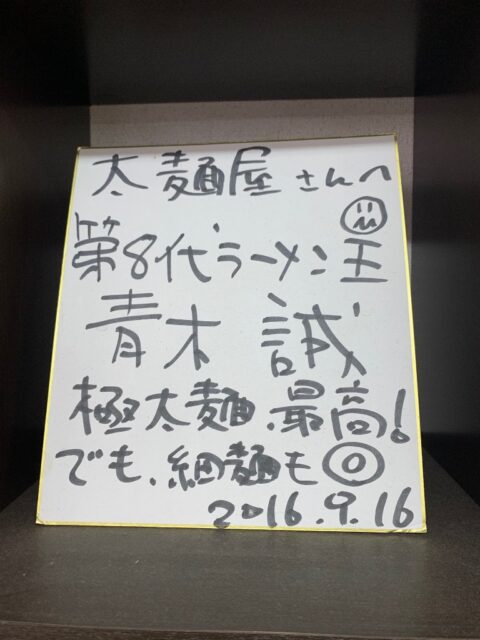 太麺屋さんへ
第8代ラーメン王
青木 誠
極太麺、最高!
でも、細麺も◎
2016.9.16